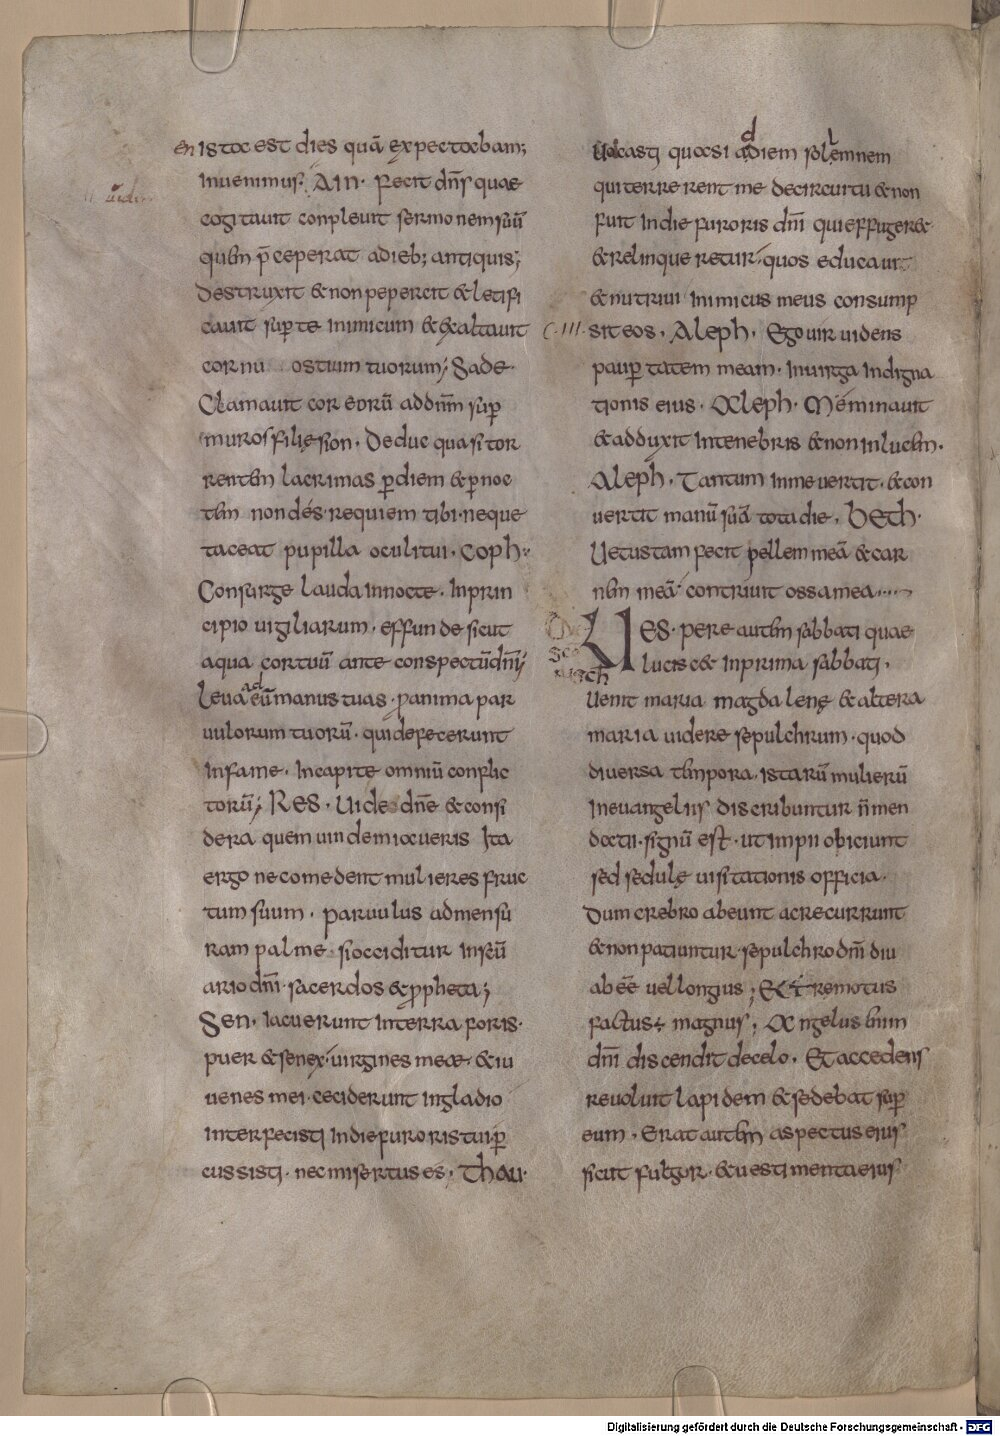 en istoc est dies quā expectabam;
Invenimus. AIN. Fecit dn̄s quae
cogitauit conpleuit sermonem suū
quem p̄ceperat a dieb; antiquis;
Destruxit & non pepercit & letifi
cauit sup te inimicum & exaltauit
cornu ostium tuorum; Sade.
Clamauit cor eorū ad dnm̄ sup
muros filię sion. Deduc quasi tor
rentem lacrimas p diem & p noc
tem non dés requiem tibi neque
taceat pupilla oculi tui. Coph.
Consurge lauda in nocte. In prin
cipio uigiliarum. effunde sicut
aqua cor tuū ante conspectū dnī;
leua ad eū manus tuas. p anima par
uulorum tuorū. qui defecerunt
in fame. In capite omniū conplic
torū; RES. Uide dnē & consi
dera quem uindemiaueris Ita
ergo ne comedent mulieres fruc
tum suum. paruulus ad mensu
ram palme si occiditur in scū
ario dnī sacerdos & ppheta;
Sen. Iacuerunt in terra foris.
puer & senex. uirgines meae. & iu
uenes mei. ceciderunt in gladio
interfecisti in die furoris tui p
cussisti. nec misertus es. Thau.
Uocasti quasi ad diem solemnem
qui terrerent me de circuitu & non
fuit in die furoris dnī qui effugeret
& relinqueretur. quos educaui
& nutriui inimicus meus consump
C. III. sit eos. Aleph. Ego uir uidens
paup tatem meam. In uirga indigna
tionis eius. Aleph. Me minauit
& adduxit in tenebris & non in lucem.
Aleph. Tantum in me uertit. & con
uertit manū suā tota die. BETH.
Uetustam fecit pellem meā & car
nem meā contriuit ossa mea
UES. pere autem sabbati quae
lucis c& in prima sabbati,
Uenit maria magdalenę & altera
maria uidere sepulchrum. quod
diuersa tempora. istarū mulierū
in euangeliis discribuntur n̄ men
dacii. signū est. ut impii obiciunt
sed sedulę uisitationis officia.
Dum crebro abeunt ac recurrunt
& non patiuntur sepulchro dnī diu
ab eē uel longius; Ec t remotus
factus magnus; Angelus enim
dnī discendit de celo. Et accedens
reuoluit lapidem & sedebat sup
eum. Erat autem aspectus eius
sicut fulgor. & uestimenta eius
Digitalisierung gefördert durch die Deutsche Forschungsgemeinschaft - DFG